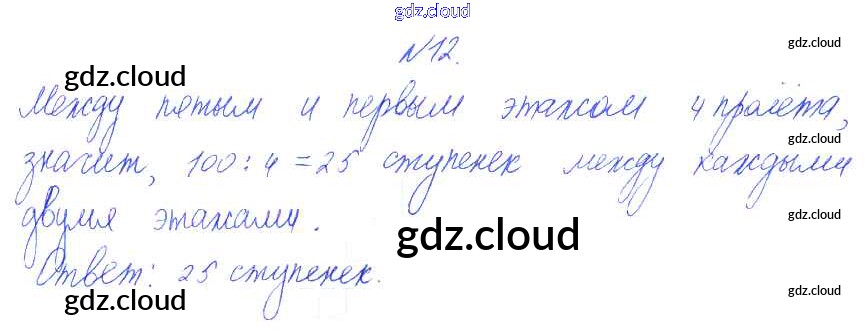 gdz.cloud
№12.
gdz.cloud
gdz.cloud
Между пятым и первым этажом 4 пролёта,
gdz.cloud
значит, 100 : 4 = 25 ступенек между каждыми
двумя этажами.
gdz.cloud
gdz.cloud
Ответ: 25 ступенек.
gdz.cloud
gdz.cloud